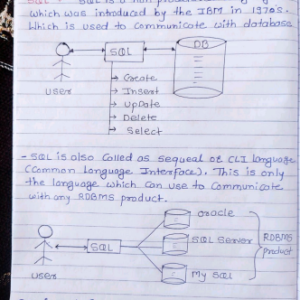 SQL :- SQL is a non
which was introduced by the IBM in 1970s.
Which is used to communicate with database
SQL
DB
user
→ Create
→ Insert
→ Update
→ Delete
→ Select
- SQL is also called as sequeal or CLI language
(Common Language Interface). This is only
the language which can use to communicate
with any RDBMS product.
oracle
SQL
SQL Server
RDBMS
product
user
My SQL